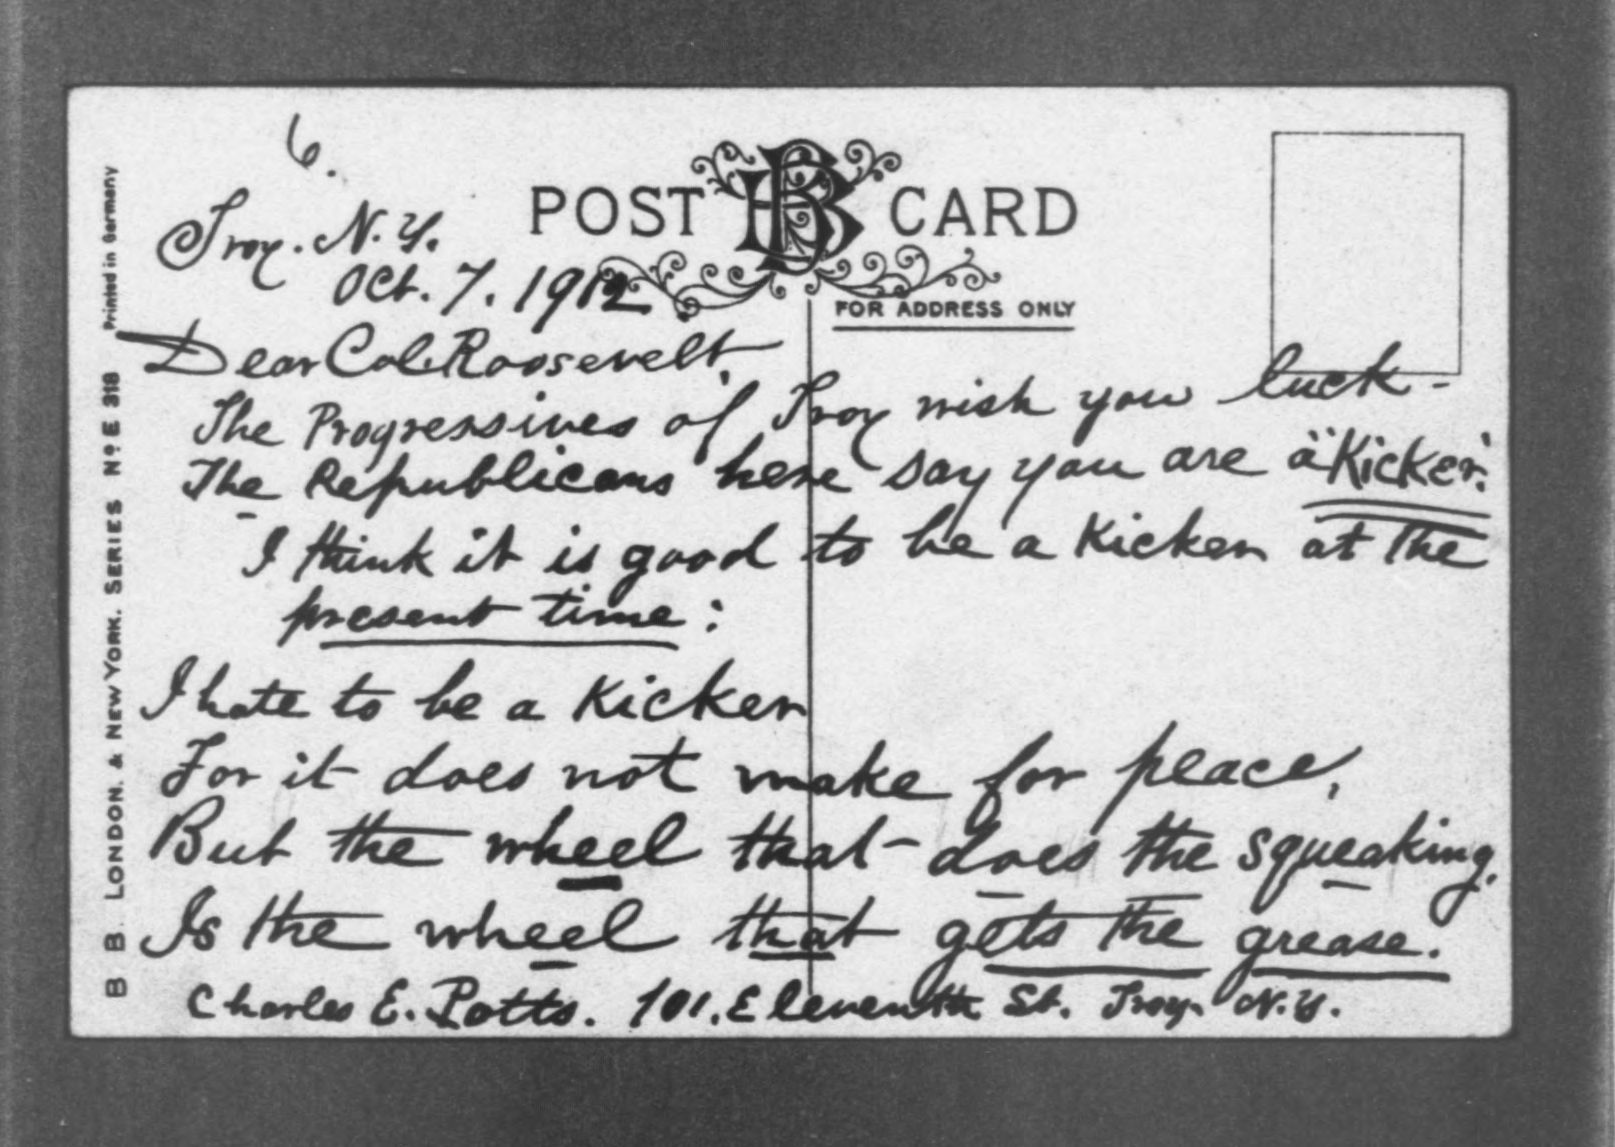 6.
POST BB CARD
Troy. N.Y.
Oct. 7. 1912
FOR ADDRESS ONLY
Dear Col. Roosevelt,
The Progressives of Troy wish you luck -
The Republicans here say you are a "Kicker".
I think it is good to be a Kicker at the
present time:
I hate to be a Kicker
For it does not make for peace,
But the wheel that does the squeaking,
Is the wheel that gets the grease.
Charles E. Potts. 101. Eleventh St. Troy. N.Y.
B B. LONDON. & NEW YORK. SERIES Nº E 318 Printed in Germany